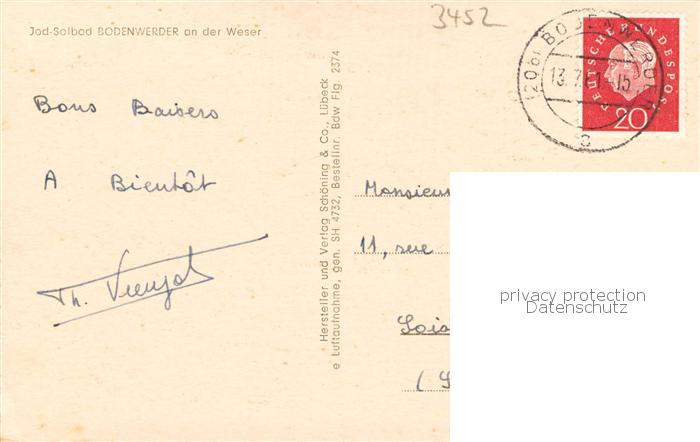 3452
Jod-Solbad BODENWERDER an der Weser
Bons Baisers
A Bientôt
Th.
Hersteller und Verlag Schöning & Co., Lübeck
e Luftaufnahme, gen. SH 4732, Bestellnr. Bdw Flg. 2374
(20b) BODENWERDER
13.7.61-15
DEUTSCHE BUNDESPOS
20
Monsieur
11, rue
privacy protection
Datenschutz